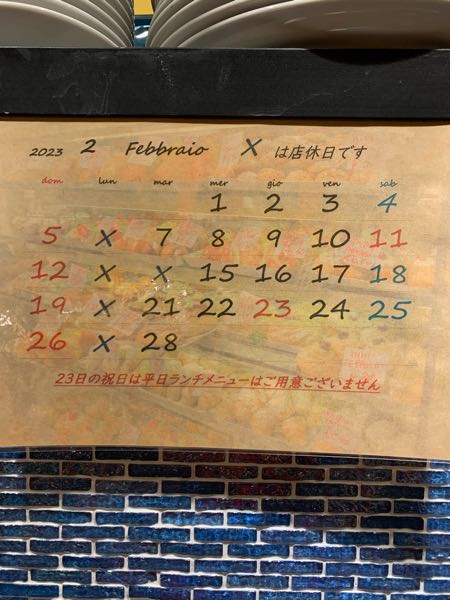 2023 2 Febbraio X は店休日です
dom lun mar mer gio ven sab
1 2 3 4
5 X 7 8 9 10 11
12 X X 15 16 17 18
19 X 21 22 23 24 25
26 X 28
23日の祝日は平日ランチメニューはご用意ございません